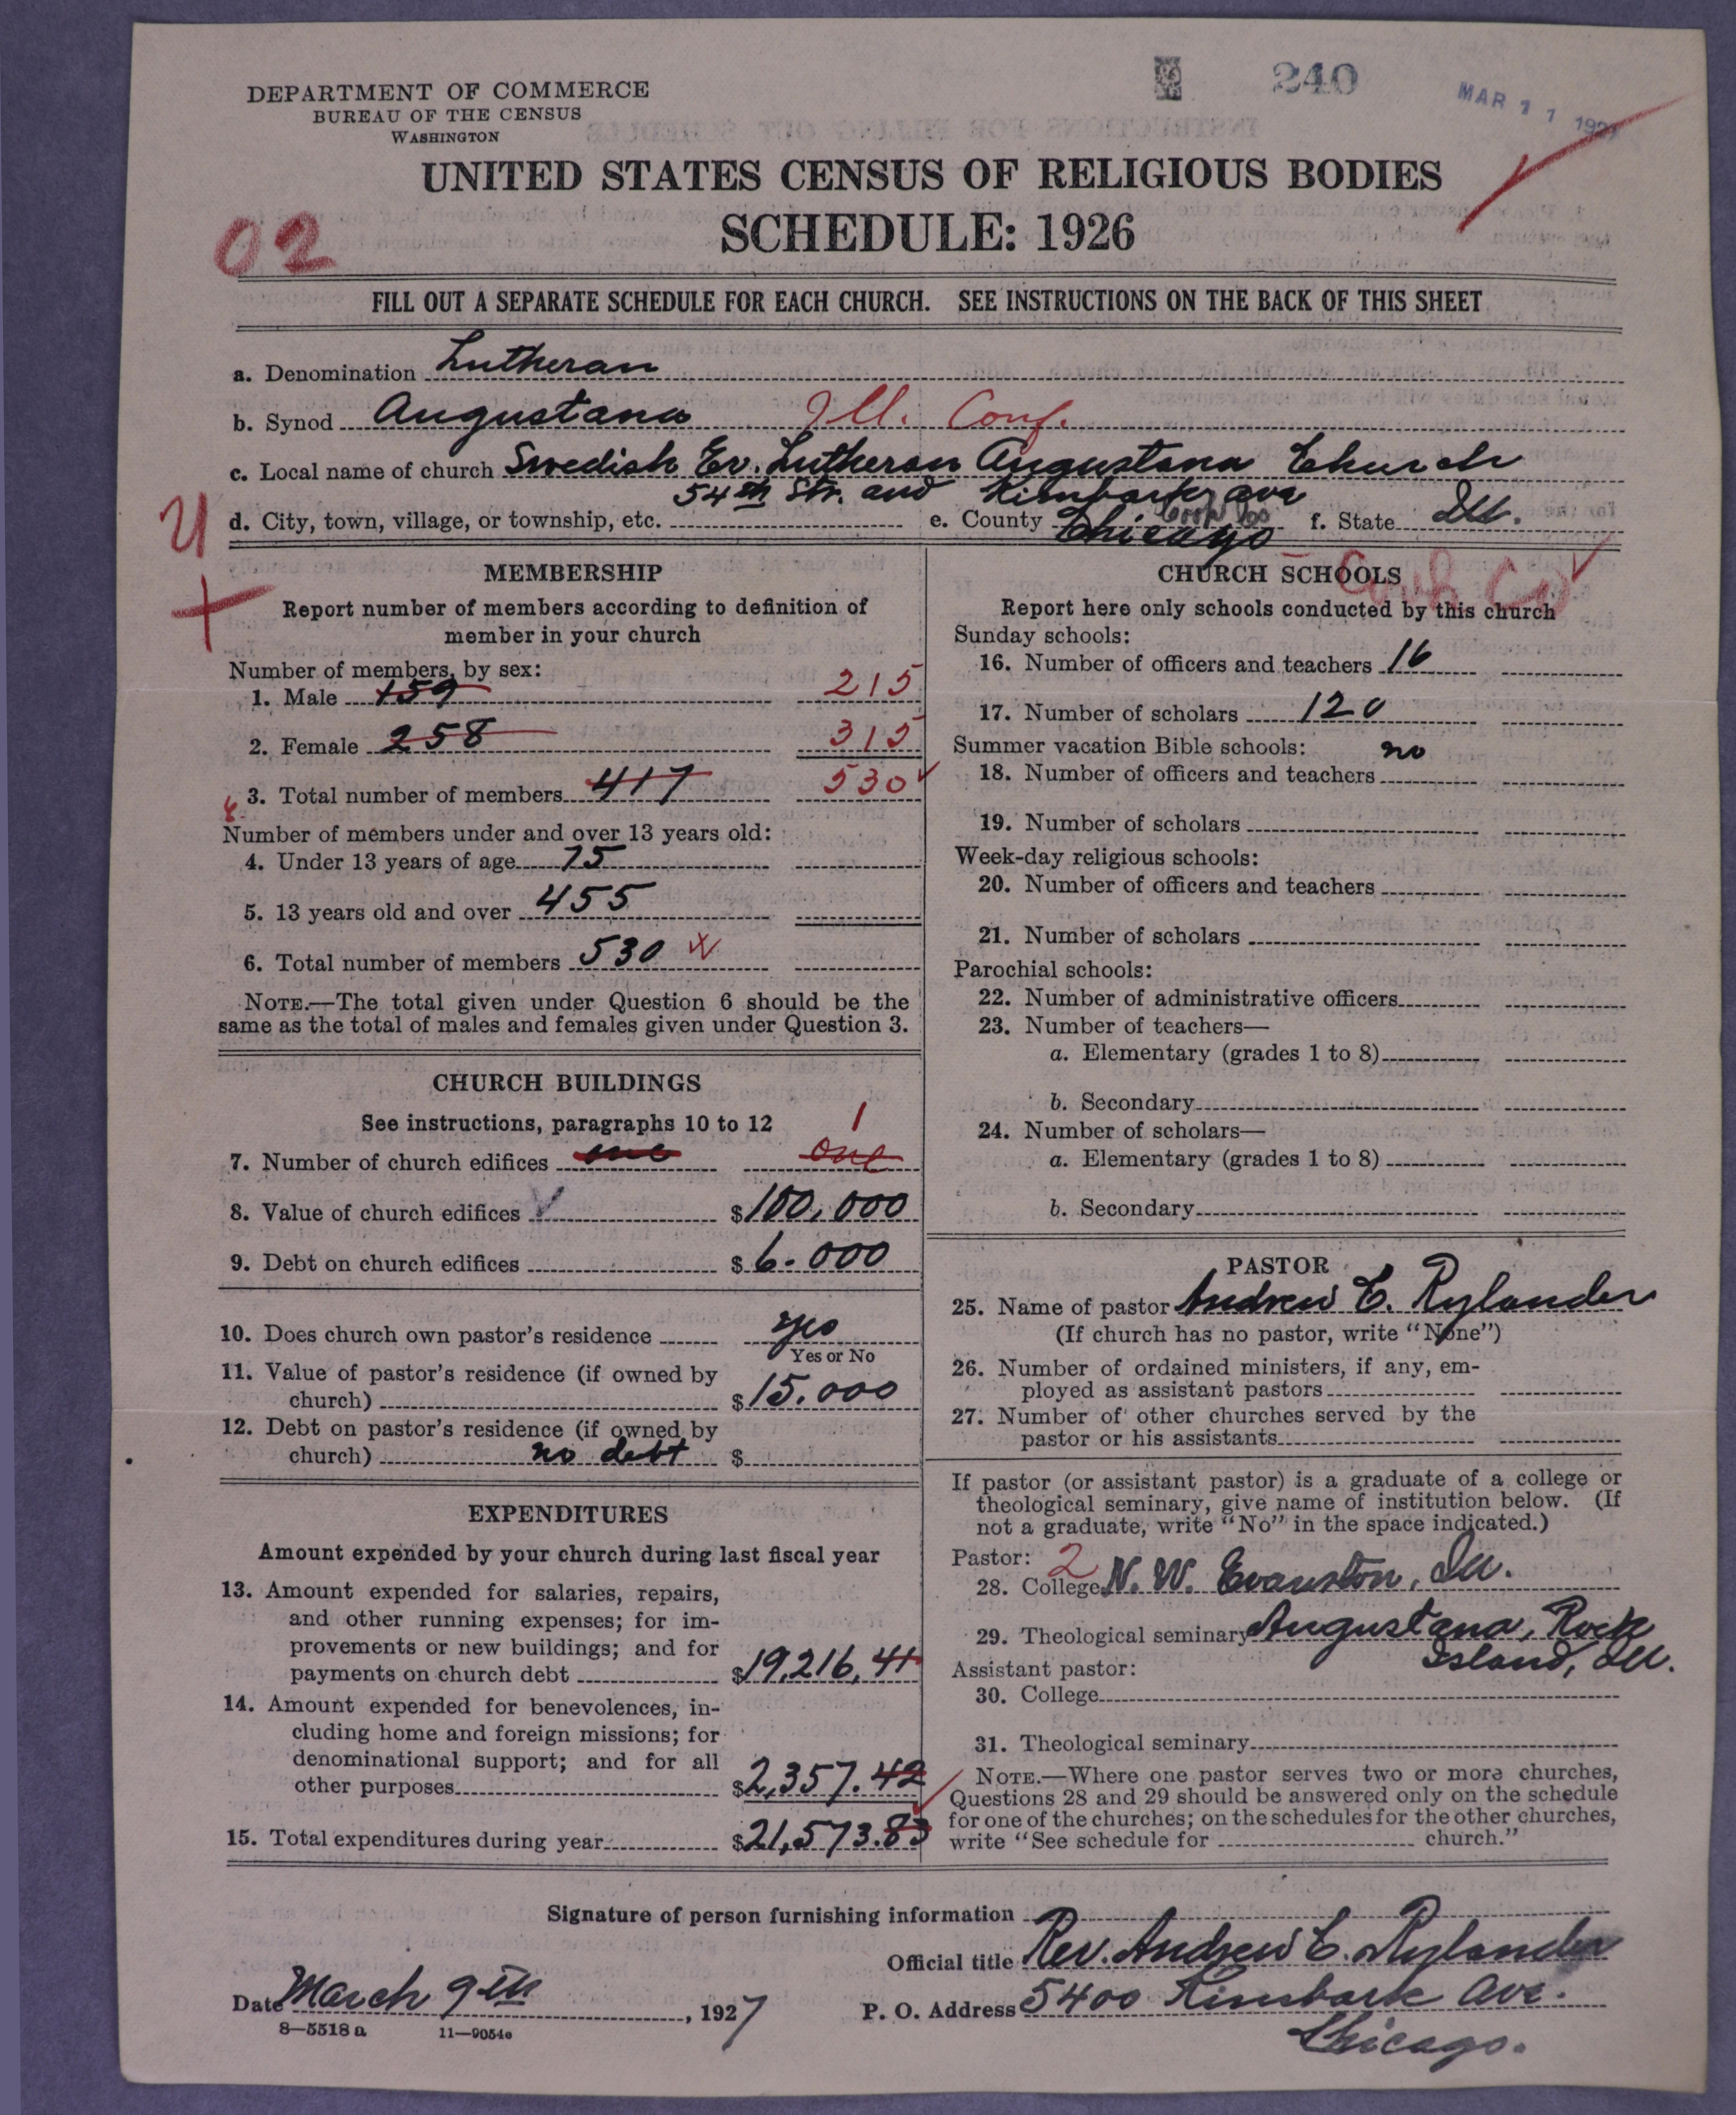 240
MAR 11 1927
DEPARTMENT OF COMMERCE
BUREAU OF THE CENSUS
WASHINGTON
UNITED STATES CENSUS OF RELIGIOUS BODIES
SCHEDULE: 1926
02
FILL OUT A SEPARATE SCHEDULE FOR EACH CHURCH. SEE INSTRUCTIONS ON THE BACK OF THIS SHEET
a. Denomination Lutheran
b. Synod Augustana Ill. Conf.
c. Local name of church Swedish Ev. Lutheran Augustana Church
54th Str. and Kimbark ave
U
d. City, town, village, or township, etc. e. County Cook Co f. State Ill.
Chicago
MEMBERSHIP
Report number of members according to definition of
member in your church
Number of members, by sex:
1. Male 159 215
2. Female 258 315
3. Total number of members 417 530
Number of members under and over 13 years old:
4. Under 13 years of age 75
5. 13 years old and over 455
6. Total number of members 530
NOTE.—The total given under Question 6 should be the
same as the total of males and females given under Question 3.
CHURCH BUILDINGS
See instructions, paragraphs 10 to 12 1
7. Number of church edifices one one
8. Value of church edifices $100,000
9. Debt on church edifices $6.000
10. Does church own pastor's residence yes
Yes or No
11. Value of pastor's residence (if owned by
church) $15.000
12. Debt on pastor's residence (if owned by
church) no debt $
EXPENDITURES
Amount expended by your church during last fiscal year
13. Amount expended for salaries, repairs,
and other running expenses; for im-
provements or new buildings; and for
payments on church debt $19,216,41
14. Amount expended for benevolences, in-
cluding home and foreign missions; for
denominational support; and for all
other purposes $2,357.42
15. Total expenditures during year $21,573.83
CHURCH SCHOOLS
Cook Co
Report here only schools conducted by this church
Sunday schools:
16. Number of officers and teachers 16
17. Number of scholars 120
Summer vacation Bible schools: no
18. Number of officers and teachers
19. Number of scholars
Week-day religious schools:
20. Number of officers and teachers
21. Number of scholars
Parochial schools:
22. Number of administrative officers
23. Number of teachers—
a. Elementary (grades 1 to 8)
b. Secondary
24. Number of scholars—
a. Elementary (grades 1 to 8)
b. Secondary
PASTOR
25. Name of pastor Andrew C. Rylander
(If church has no pastor, write "None")
26. Number of ordained ministers, if any, em-
ployed as assistant pastors
27. Number of other churches served by the
pastor or his assistants
If pastor (or assistant pastor) is a graduate of a college or
theological seminary, give name of institution below. (If
not a graduate, write "No" in the space indicated.)
Pastor: 2
28. College N. W. Evanston, Ill.
29. Theological seminary Augustana, Rock
Island, Ill.
Assistant pastor:
30. College
31. Theological seminary
NOTE.—Where one pastor serves two or more churches,
Questions 28 and 29 should be answered only on the schedule
for one of the churches; on the schedules for the other churches,
write "See schedule for church."
Signature of person furnishing information
Official title Rev. Andrew C. Rylander
Date March 9th, 1927 P. O. Address 5400 Kimbark Ave.
Chicago.
8—5518 a 11—9054